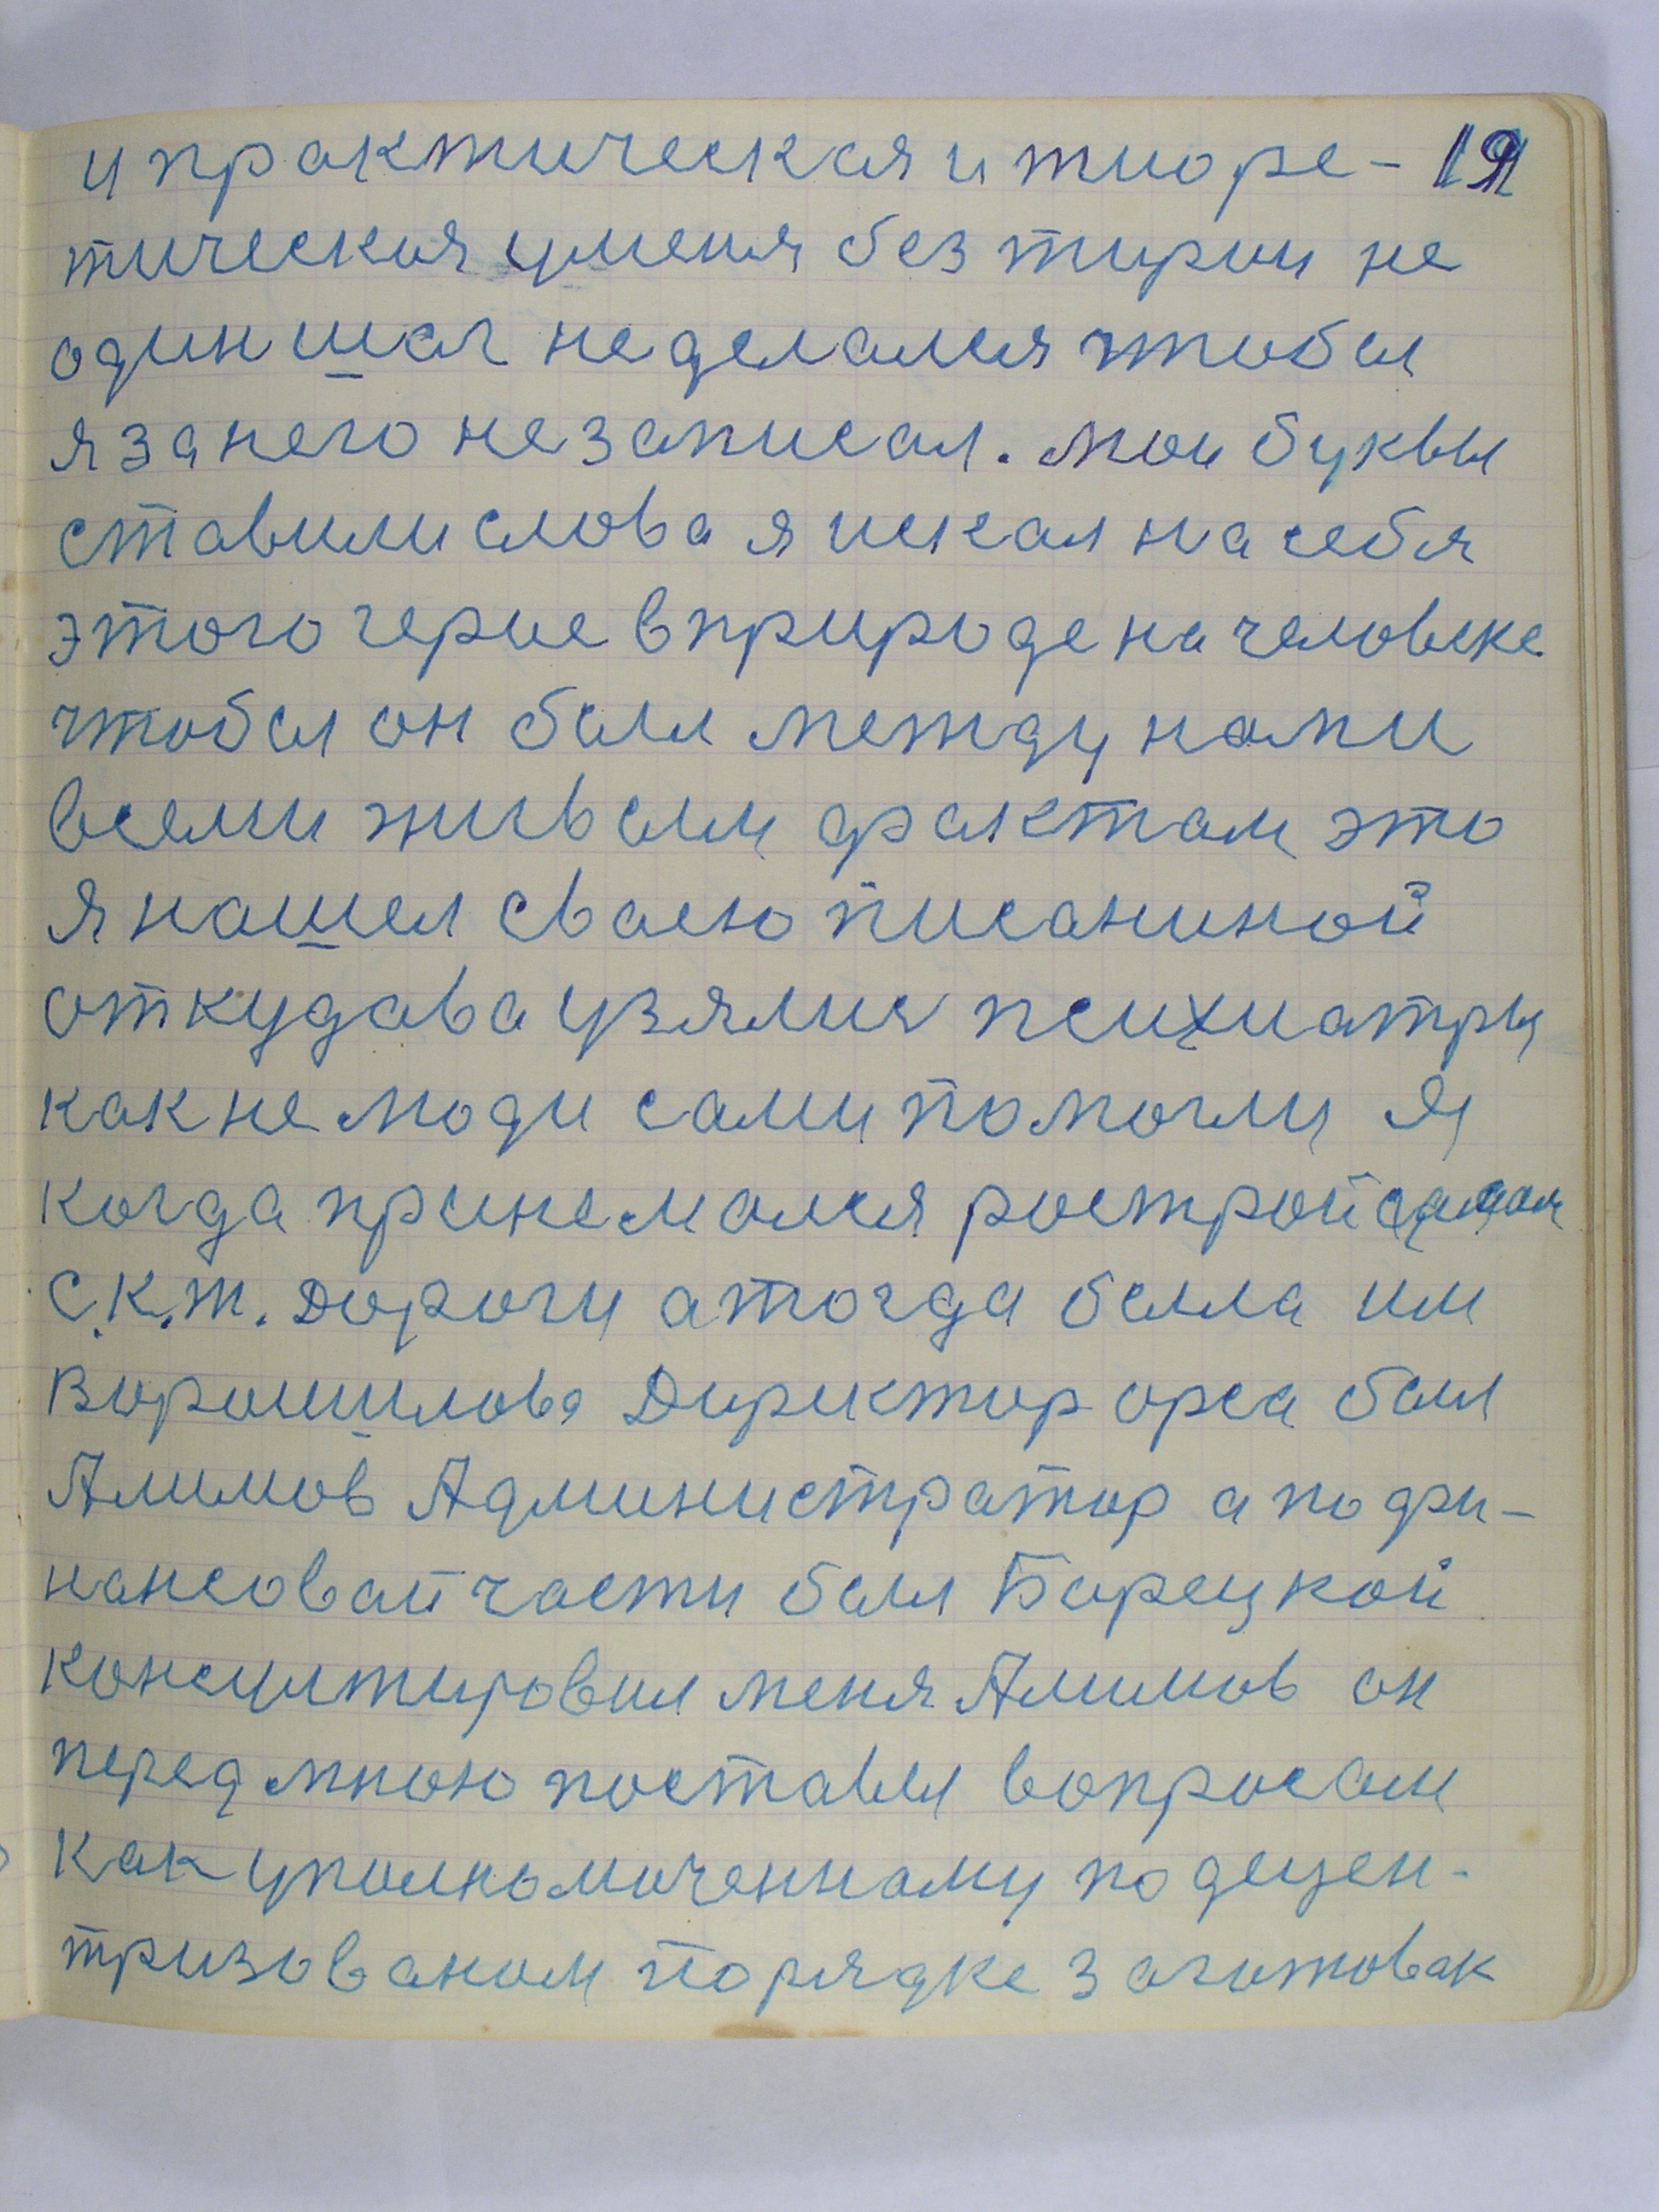 и практическая и тиоре- 19
тическия уменя без тирии не
один шаг не делался чтобы
я за него не записал. Мои буквы
ставили слова я искал на себя
этого герое в природе на человеке
чтобы он был между нами
всеми живым фрактам это
я нашел своею писаниной
откудава узялись психиатры
как не люди сами помогли я
когда принемался
С.К.Ж. дороги а тогда былла им
Ворошилова Дириктор орса был
Алимов Администратор а по фи-
нансовай части был Борецкой
консултировал меня Алимов он
передмною поставил вопросам
как уполномиченному по децен-
тризованом порядке заготовак